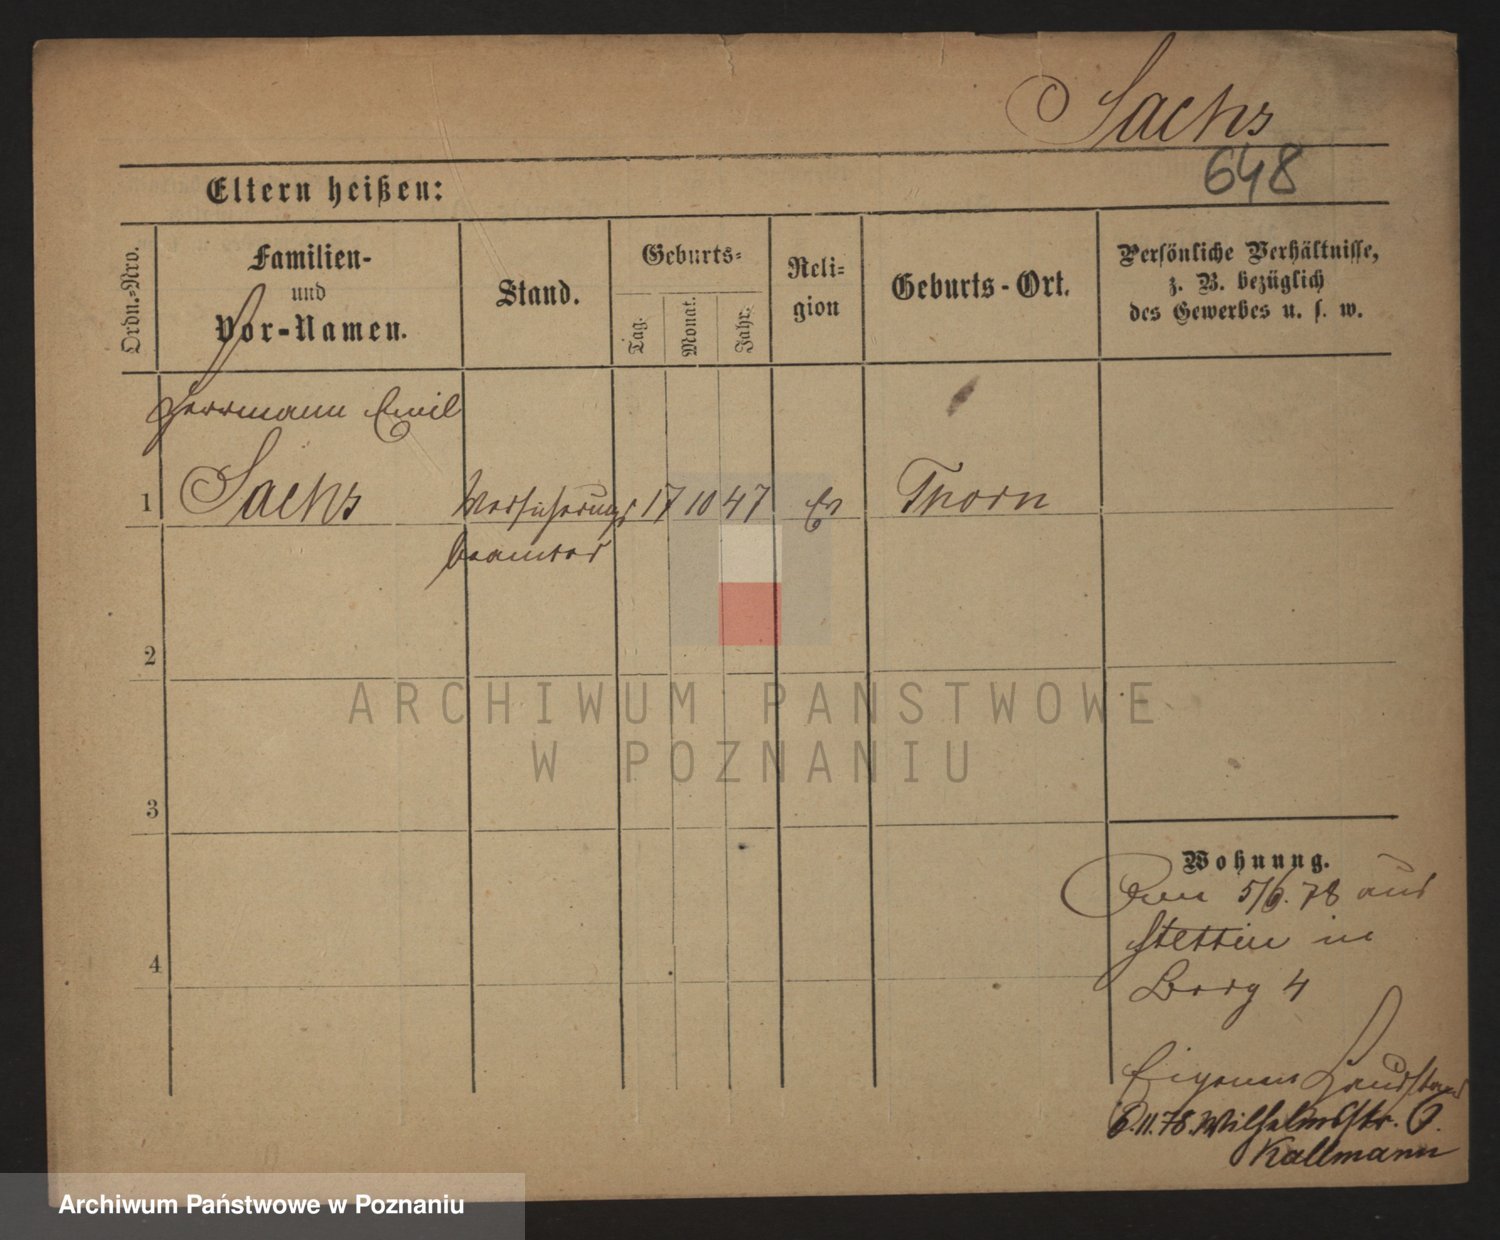 Sachs
648
Eltern heißen:
Ordn.-Nro.
Familien-
und
Vor-Namen.
Stand.
Geburts-
Tag.
Monat.
Jahr.
Reli-
gion
Geburts-Ort.
Persönliche Verhältnisse,
z. B. bezüglich
des Gewerbes u. s. w.
Herrmann Emil
1 Sachs Versicherungs 17 10 47 Ev Thorn
beamter
2
ARCHIWUM PAŃSTWOWE
W POZNANIU
3
Wohnung.
Den 5/6. 78 aus
Stettin in
Berg 4
Eigener Hausstand
6.11.78. Wilhelmstr.
Kallmann
4
Archiwum Państwowe w Poznaniu